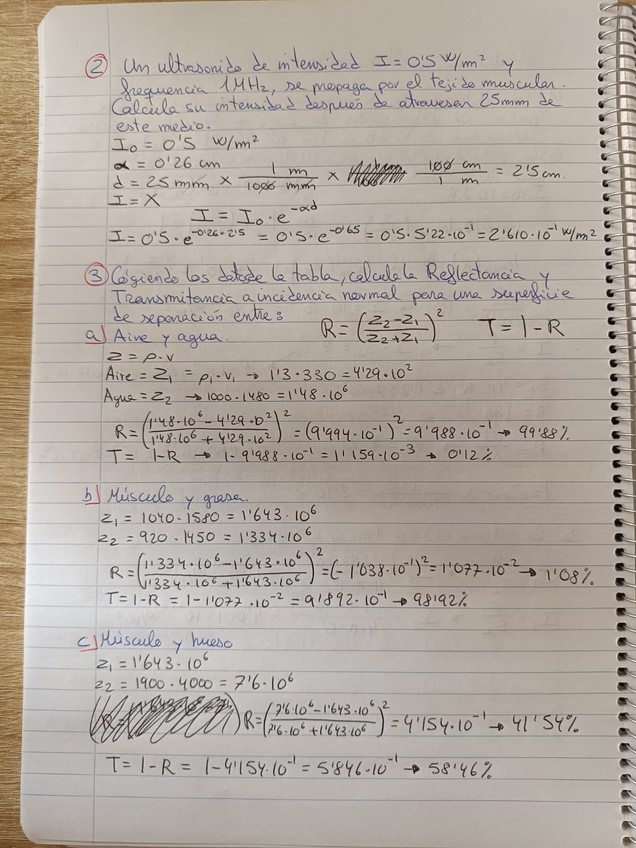 2) Un ultrasonido de intensidad I = 0'5 W/m² y
frequencia 1MHz, se propaga por el tejido muscular.
Calcula su intensidad después de atravesar 25mm de
este medio.
I₀ = 0'5 W/m²
α = 0'26 cm
d = 25 mm × 1 m / 1000 mm × 100 cm / 1 m = 2'5 cm.
I = X
I = I₀ · e^-αd
I = 0'5 · e^-0'26·2'5 = 0'5 · e^-0'65 = 0'5 · 5'22 · 10⁻¹ = 2'610 · 10⁻¹ W/m²
3) Cogiendo los datos de la tabla, calcula la Reflectancia y
Transmitancia a incidencia normal para una superficie
de separación entre:
R = ((Z₂-Z₁)/(Z₂+Z₁))² T = 1 - R
a) Aire y agua.
Z = ρ · v
Aire = Z₁ = ρ₁ · v₁ → 1'3 · 330 = 4'29 · 10²
Agua = Z₂ → 1000 · 1480 = 1'48 · 10⁶
R = ((1'48 · 10⁶ - 4'29 · 10²)/(1'48 · 10⁶ + 4'29 · 10²))² = (9'994 · 10⁻¹)² = 9'988 · 10⁻¹ → 99'88%
T = 1-R → 1 - 9'988 · 10⁻¹ = 1'159 · 10⁻³ → 0'12%
b) Músculo y grasa.
Z₁ = 1040 · 1580 = 1'643 · 10⁶
Z₂ = 920 · 1450 = 1'334 · 10⁶
R = ((1'334 · 10⁶ - 1'643 · 10⁶)/(1'334 · 10⁶ + 1'643 · 10⁶))² = (-1'038 · 10⁻¹)² = 1'077 · 10⁻² → 1'08%
T = 1-R = 1 - 1'077 · 10⁻² = 9'892 · 10⁻¹ → 98'92%
c) Músculo y hueso
Z₁ = 1'643 · 10⁶
Z₂ = 1900 · 4000 = 7'6 · 10⁶
R = ((7'6 · 10⁶ - 1'643 · 10⁶)/(7'6 · 10⁶ + 1'643 · 10⁶))² = 4'154 · 10⁻¹ → 41'54%
T = 1-R = 1 - 4'154 · 10⁻¹ = 5'846 · 10⁻¹ → 58'46%